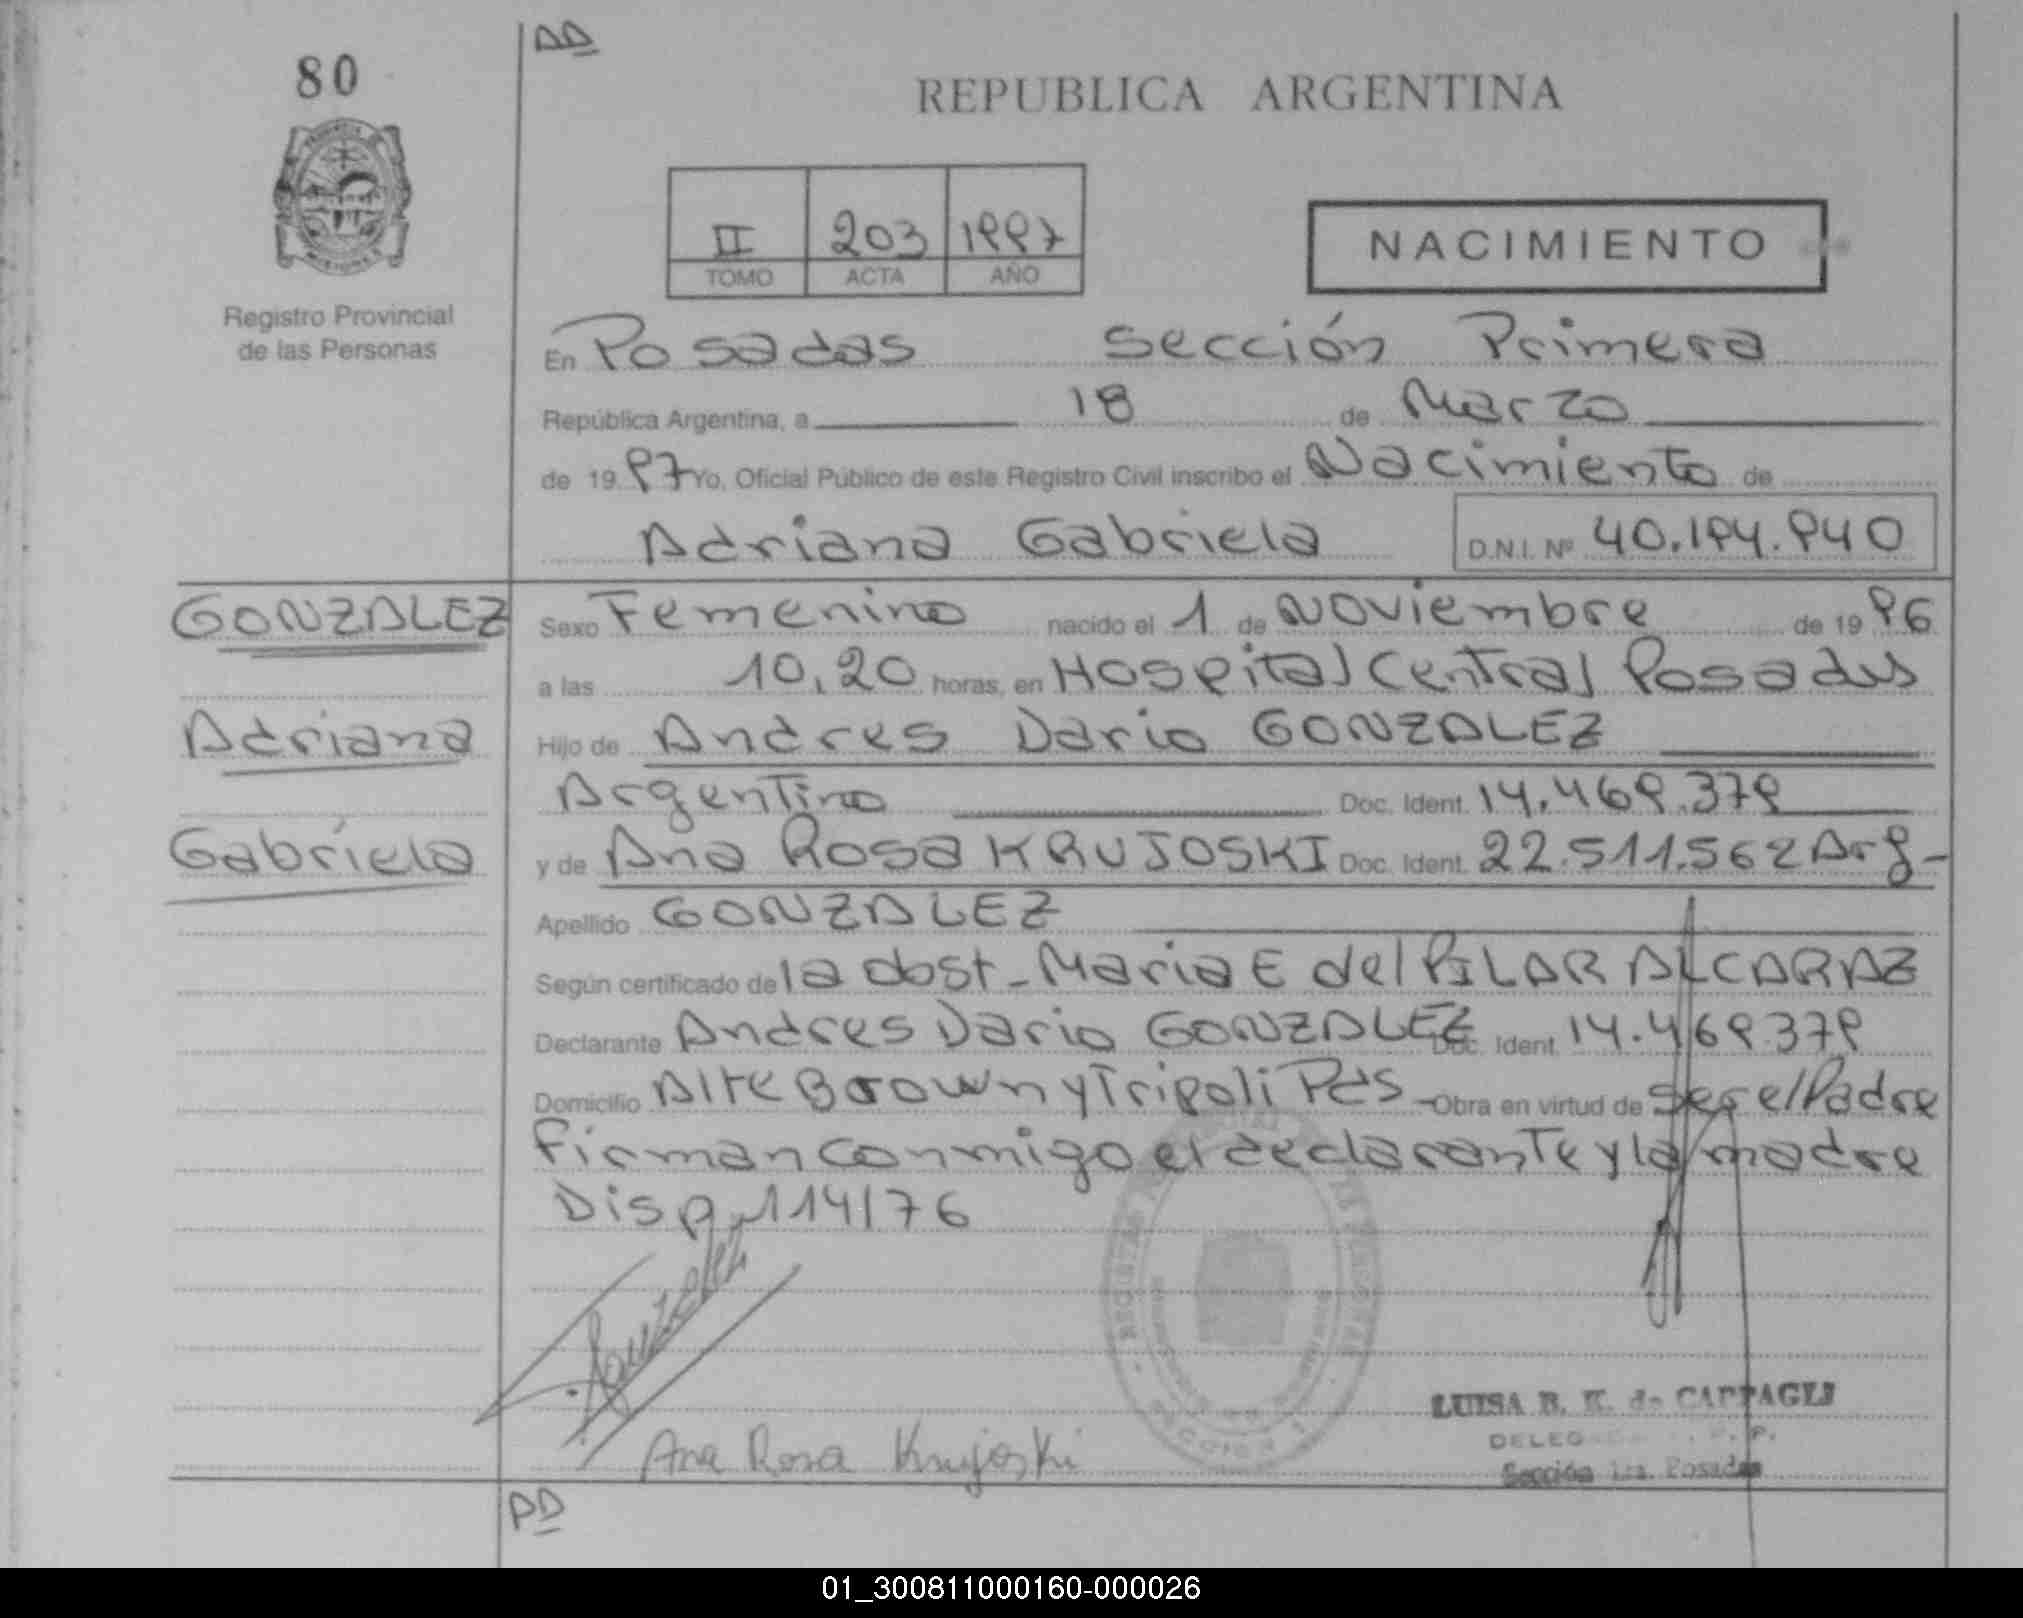 80
DD
REPUBLICA ARGENTINA
II 203 1997
TOMO ACTA AÑO
NACIMIENTO
Registro Provincial
de las Personas
En Posadas sección Primera
República Argentina, a 18 de Marzo
de 19 97 Yo, Oficial Público de este Registro Civil inscribo el Nacimiento de
Adriana Gabriela D.N.I. Nº 40.194.940
GONZALEZ
Adriana
Gabriela
Sexo Femenino nacido el 1 de Noviembre de 19 96
a las 10,20 horas, en Hospital Central Posadas
Hijo de Andres Dario GONZALEZ
Argentino Doc. Ident. 14.469.379
y de Ana Rosa KRUJOSKI Doc. Ident. 22.511.562 Arg-
Apellido GONZALEZ
Según certificado de la obst- Maria E del PILAR ALCARAZ
Declarante Andres Dario GONZALEZ Doc. Ident. 14.469.379
Domicilio Alte Brown y Tripoli Pds - Obra en virtud de ser el Padre
Firman conmigo el declarante y la madre
Disp. 114/76
Ana Rosa Krujoski
LUISA B. K. de CAPPAGLI
Sección 1ra. Posadas
DD
01_300811000160-000026